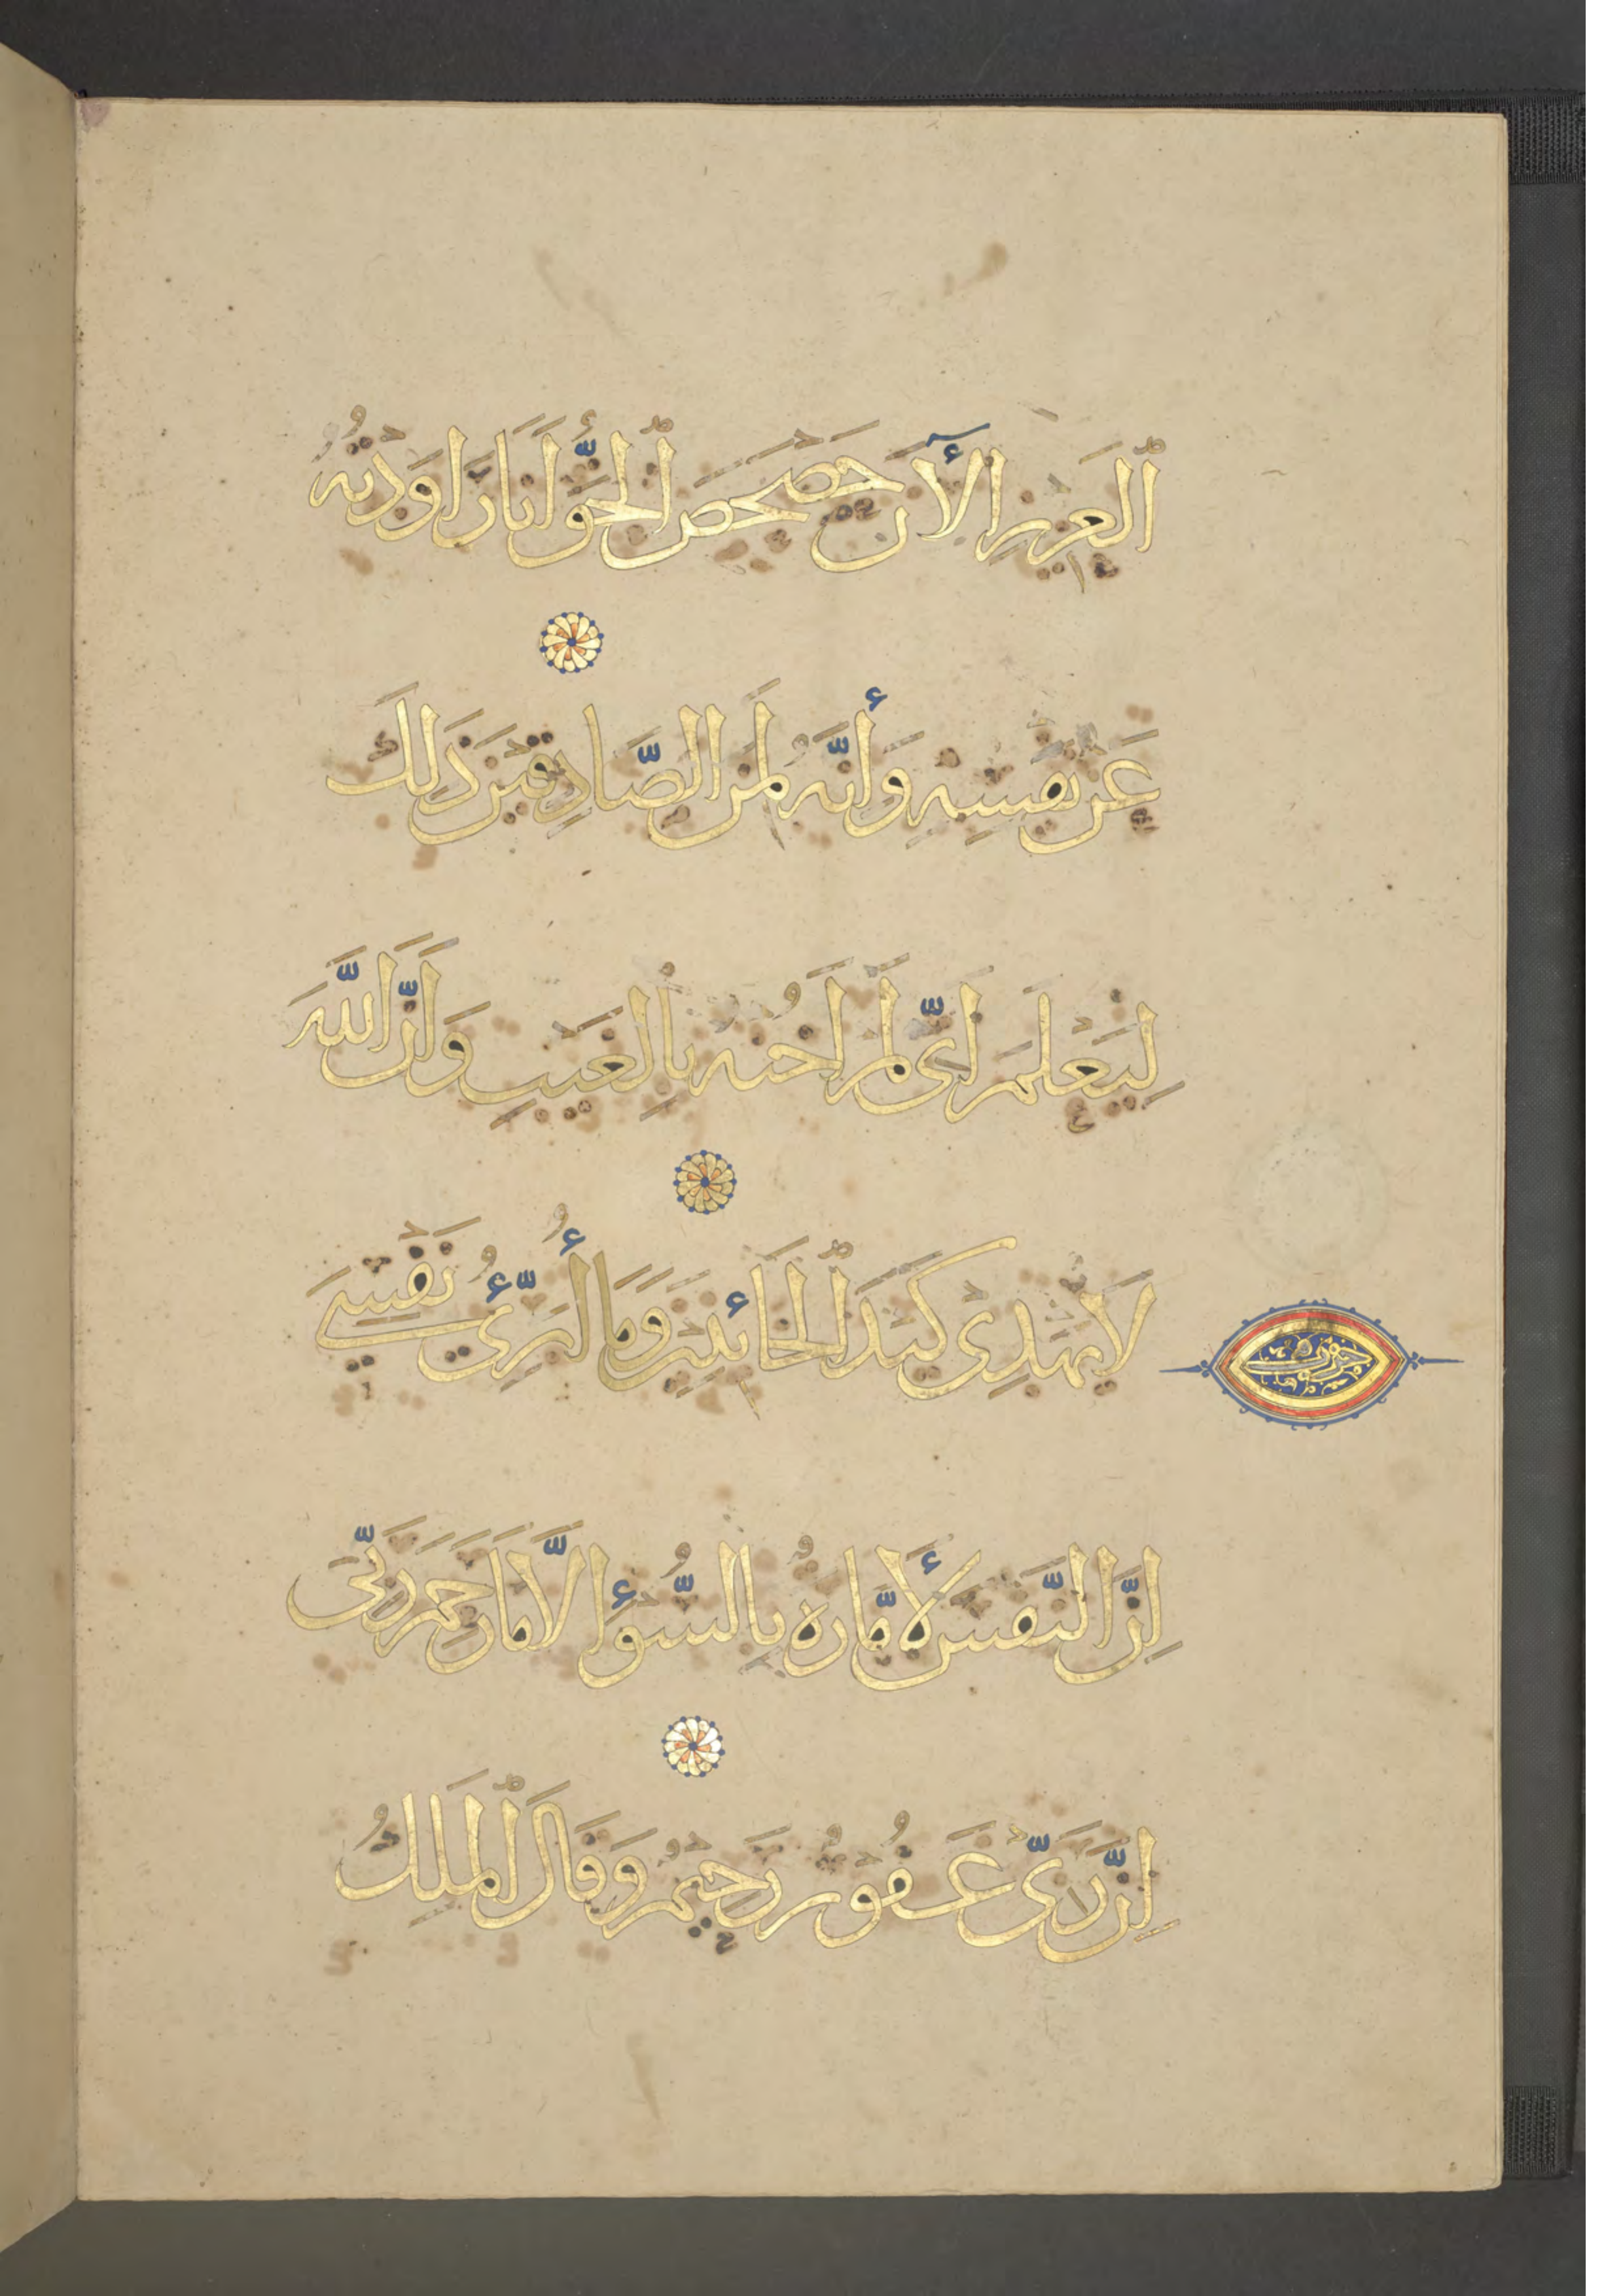 ٱلْعَزِيزِ الْآنَ حَصْحَصَ ٱلْحَقُّ أَنَا رَاوَدْتُهُ
عَنْ نَفْسِهِ وَأَنَّهُ لَمِنَ الصَّادِقِينَ ذَلِكَ
لِيَعْلَمَ أَنِّى لَمْ أَخُنْهُ بِالْغَيْبِ وَأَنَّ اللَّهَ
لَا يَهْدِى كَيْدَ ٱلْخَائِنِينَ وَمَا أُبَرِّئُ نَفْسِى
إِنَّ النَّفْسَ لَأَمَّارَةٌ بِالسُّوءِ إِلَّا مَا رَحِمَ رَبِّى
إِنَّ رَبِّى غَفُورٌ رَحِيمٌ وَقَالَ ٱلْمَلِكُ